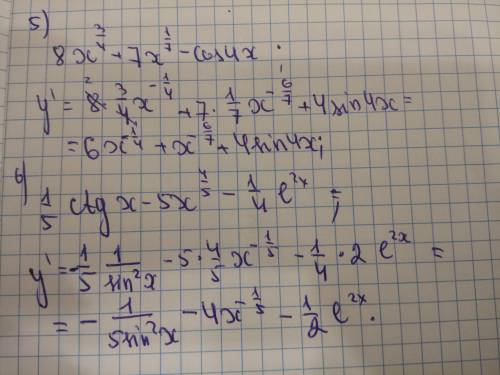 5)
8x^{3/4} + 7x^{1/7} - cos4x.
y' = 8 · 3/4 x^{-1/4} + 7 · 1/7 x^{-6/7} + 4sin4x =
= 6x^{-1/4} + x^{-6/7} + 4sin4x;
6) 1/5 ctg x - 5x^{4/5} - 1/4 e^{2x} ;
y' = -1/5 1/sin²x - 5 · 4/5 x^{-1/5} - 1/4 · 2 e^{2x} =
= - 1/5sin²x - 4x^{-1/5} - 1/2 e^{2x}.